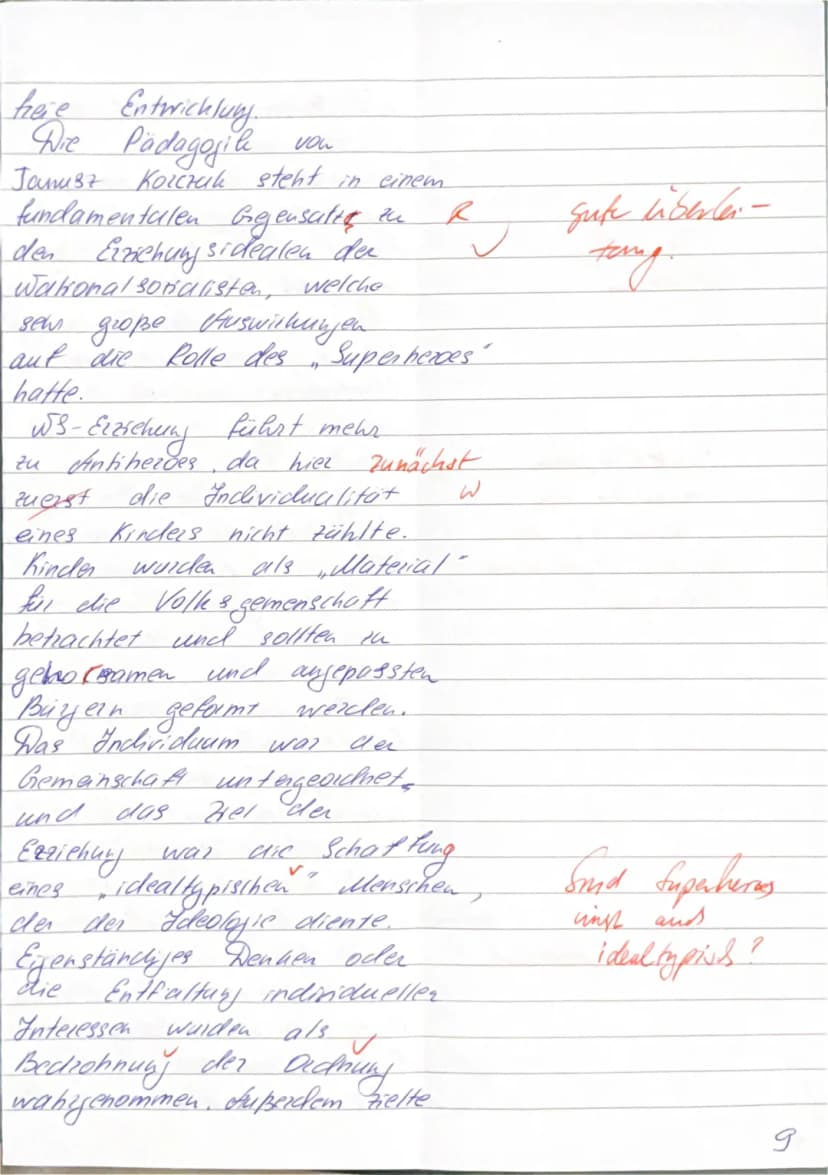 freie Entwicklung.
Die Pädagogik von
Janusz Korczak steht in einem
fundamentalen Gegensatz zu R gute Überlei-
den Erziehungsidealen der tung.
Nationalsozialisten, welche
sehr große Auswirkungen
auf die Rolle des „Superheroes"
hatte.
NS-Erziehung führt mehr
zu Antiheroes, da hier zunächst
zuerst die Individualität W
eines Kindes nicht zählte.
Kinder wurden als „Material"
für die Volksgemenschaft
betrachtet und sollten zu
gehorsamen und angepassten
Bürgern geformt werden.
Das Individuum war der
Gemeinschaft untergeordnet
und das Ziel der
Erziehung war die Schaffung
eines „idealtypischen" Menschen, Sind Superheroes
der der Ideologie diente. nicht auch
Eigenständiges Denken oder idealtypisch?
die Entfaltung individueller
Interessen wurden als
Bedrohnung der Ordnung
wahrgenommen. Außerdem zielte
9